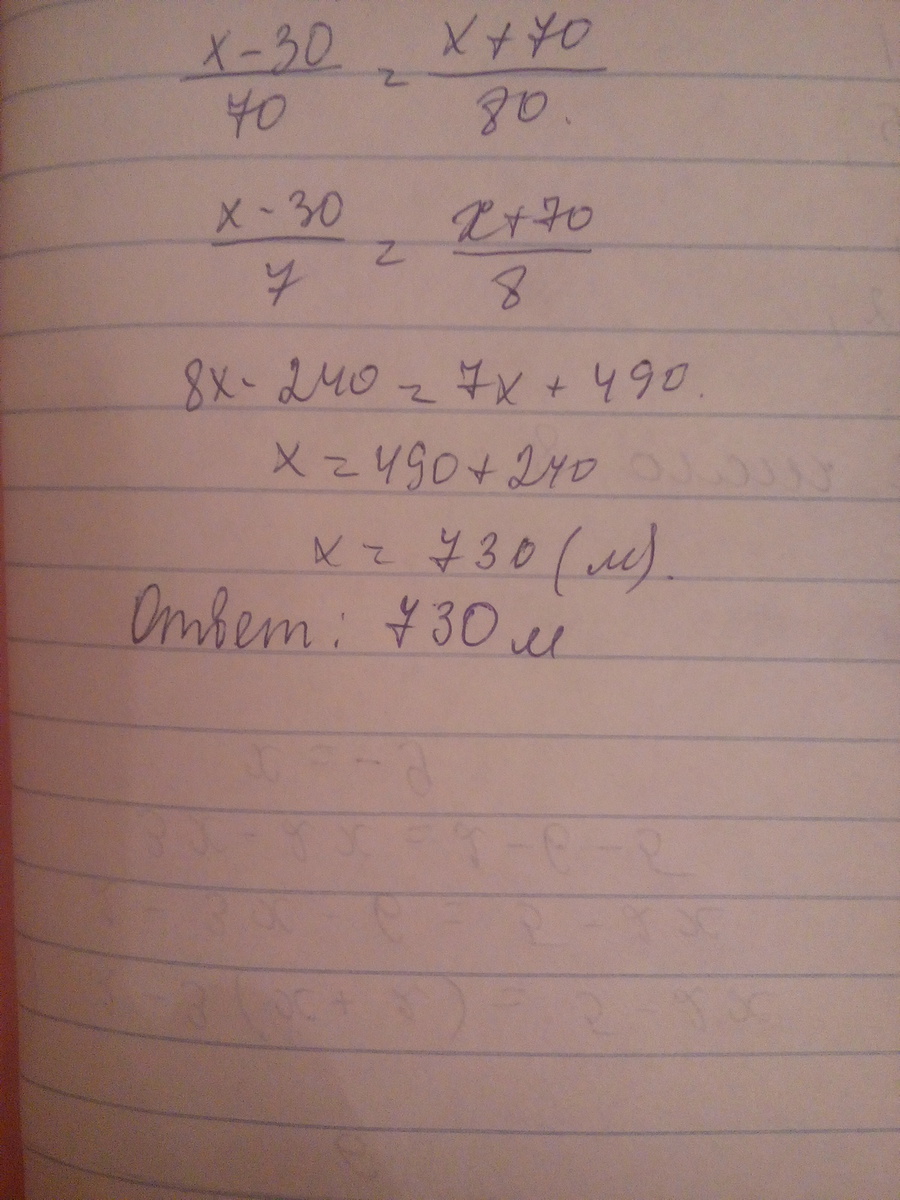 x - 30 / 70 = x + 70 / 80.
x - 30 / 7 = x + 70 / 8
8x - 240 = 7x + 490.
x = 490 + 240
x = 730 (м).
Ответ: 730 м